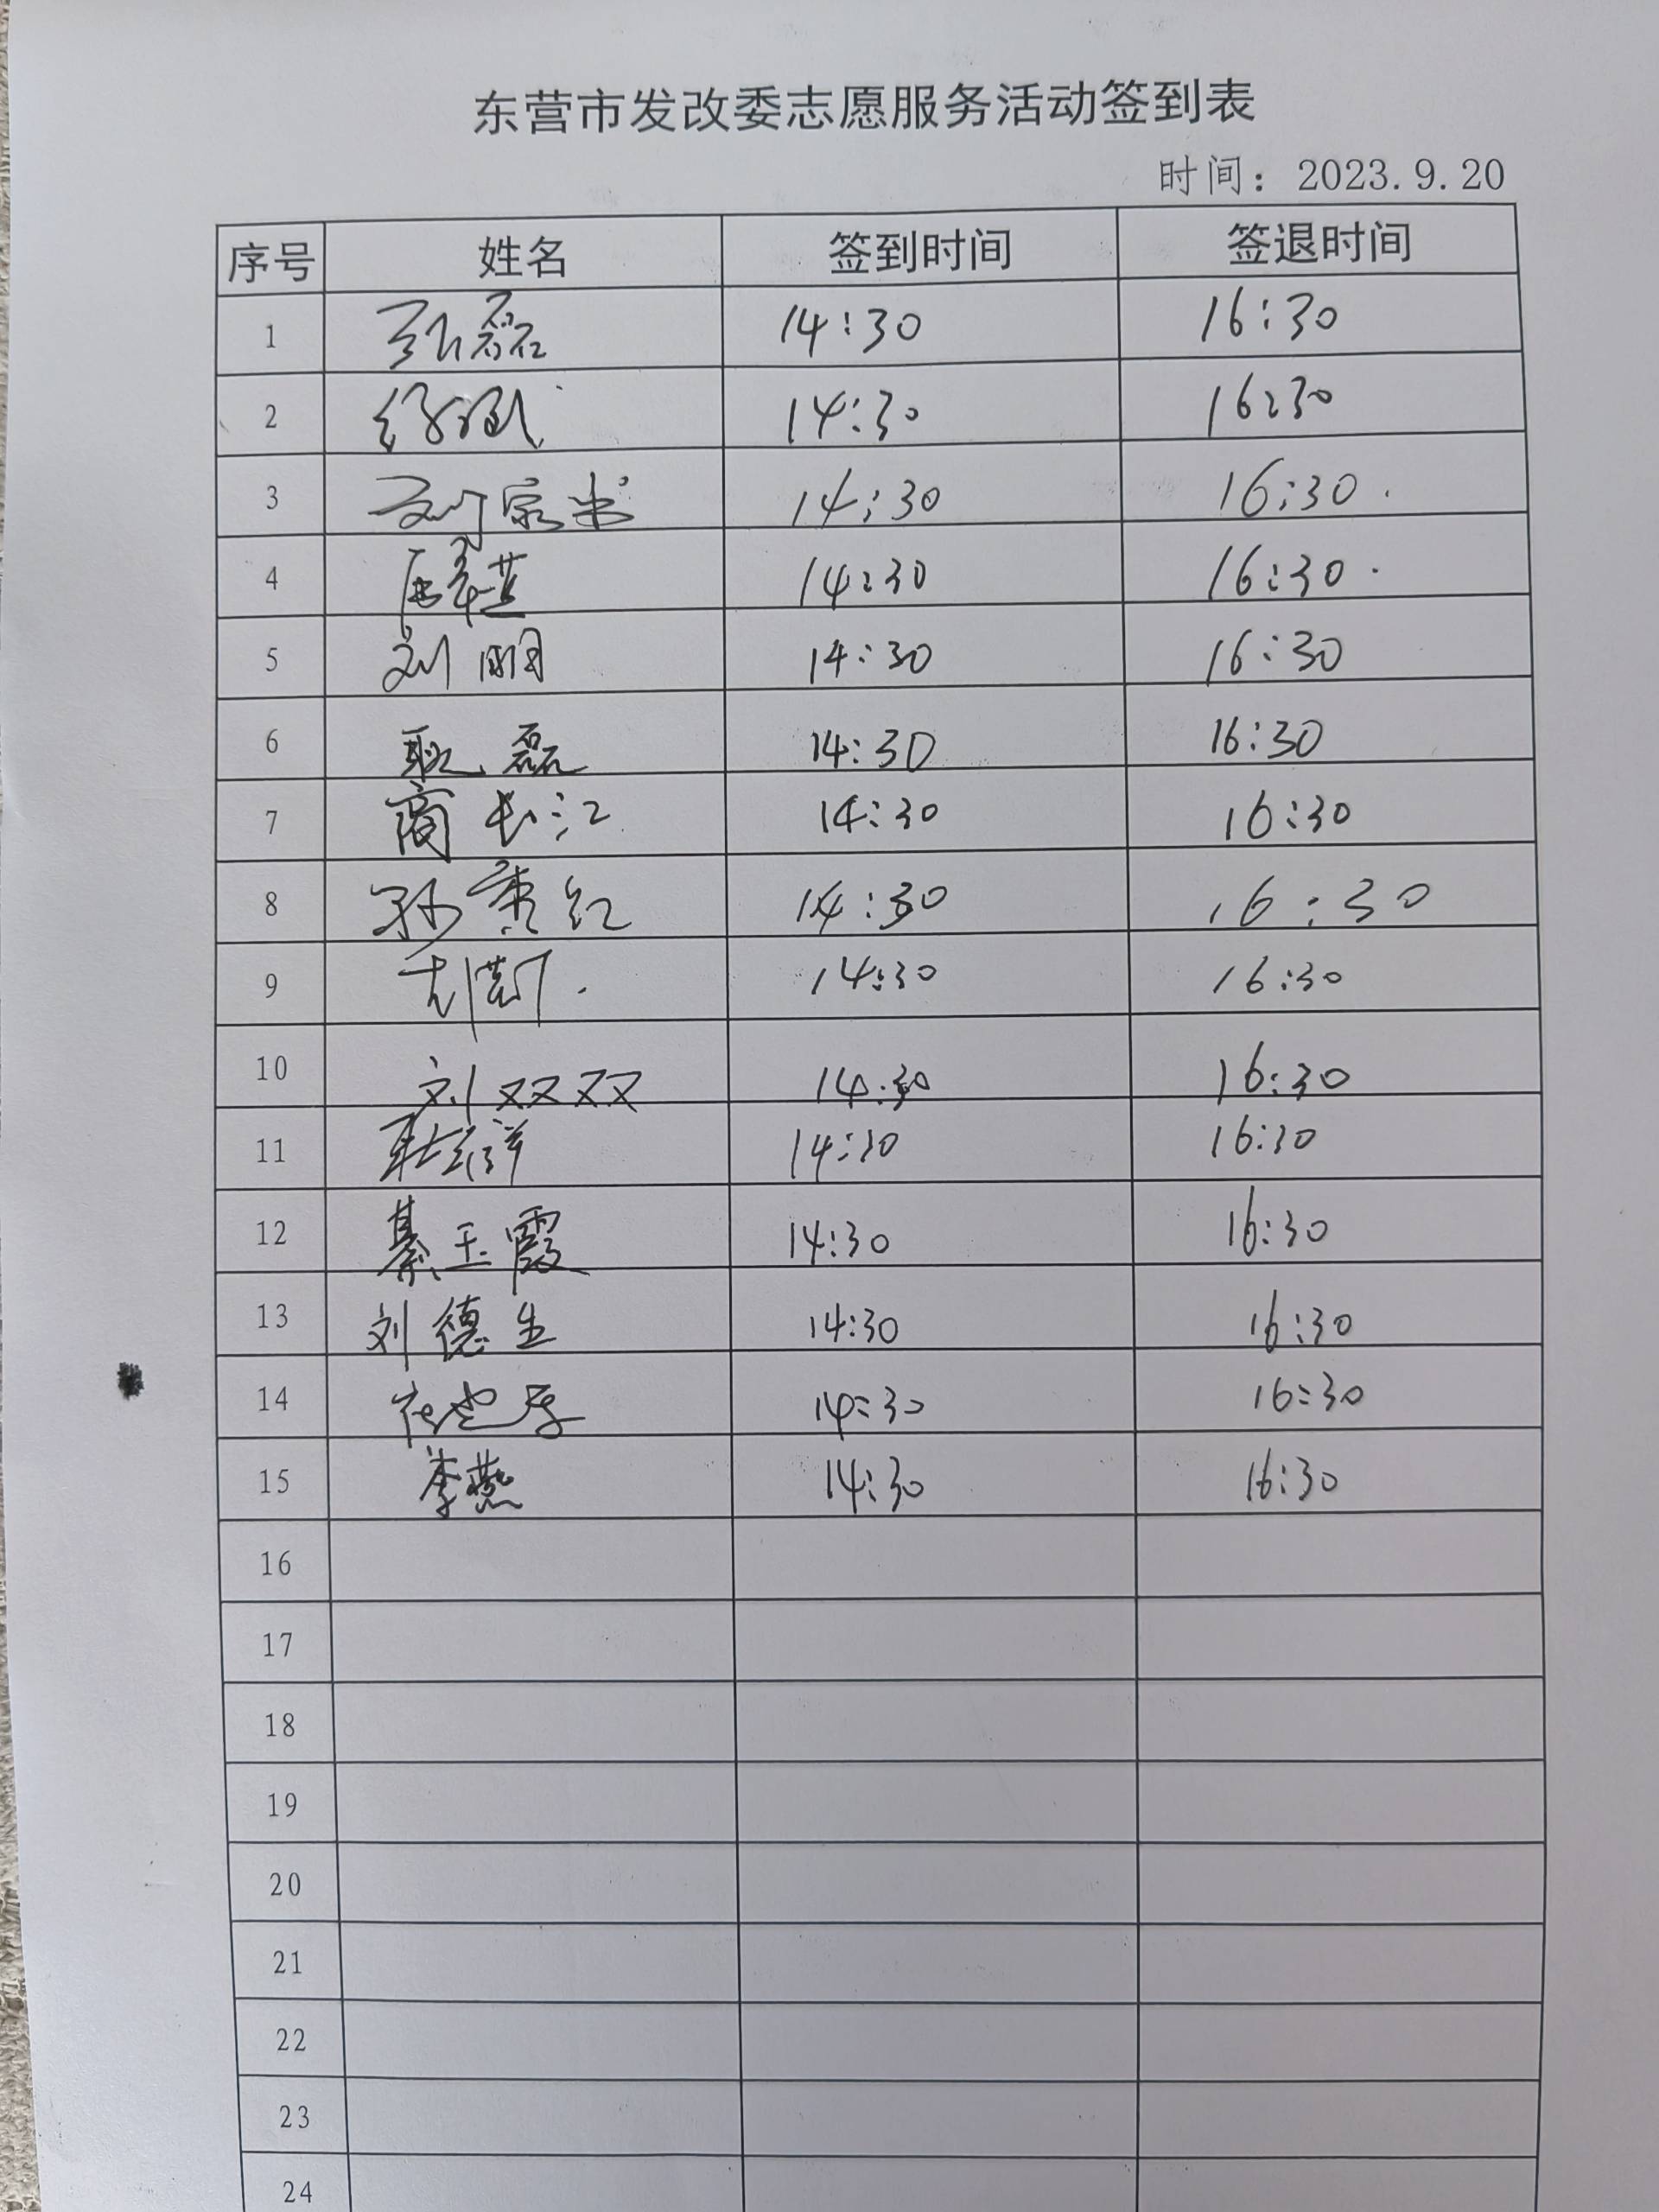 东营市发改委志愿服务活动签到表
时间：2023.9.20
序号 姓名 签到时间 签退时间
1 张磊 14:30 16:30
2 14:30 16:30
3 刘家 14:30 16:30
4 14:30 16:30
5 刘明 14:30 16:30
6 耿磊 14:30 16:30
7 商长江 14:30 16:30
8 孙秀红 14:30 16:30
9 14:30 16:30
10 刘双双 14:30 16:30
11 14:30 16:30
12 綦玉霞 14:30 16:30
13 刘德生 14:30 16:30
14 14:30 16:30
15 李燕 14:30 16:30
16
17
18
19
20
21
22
23
24